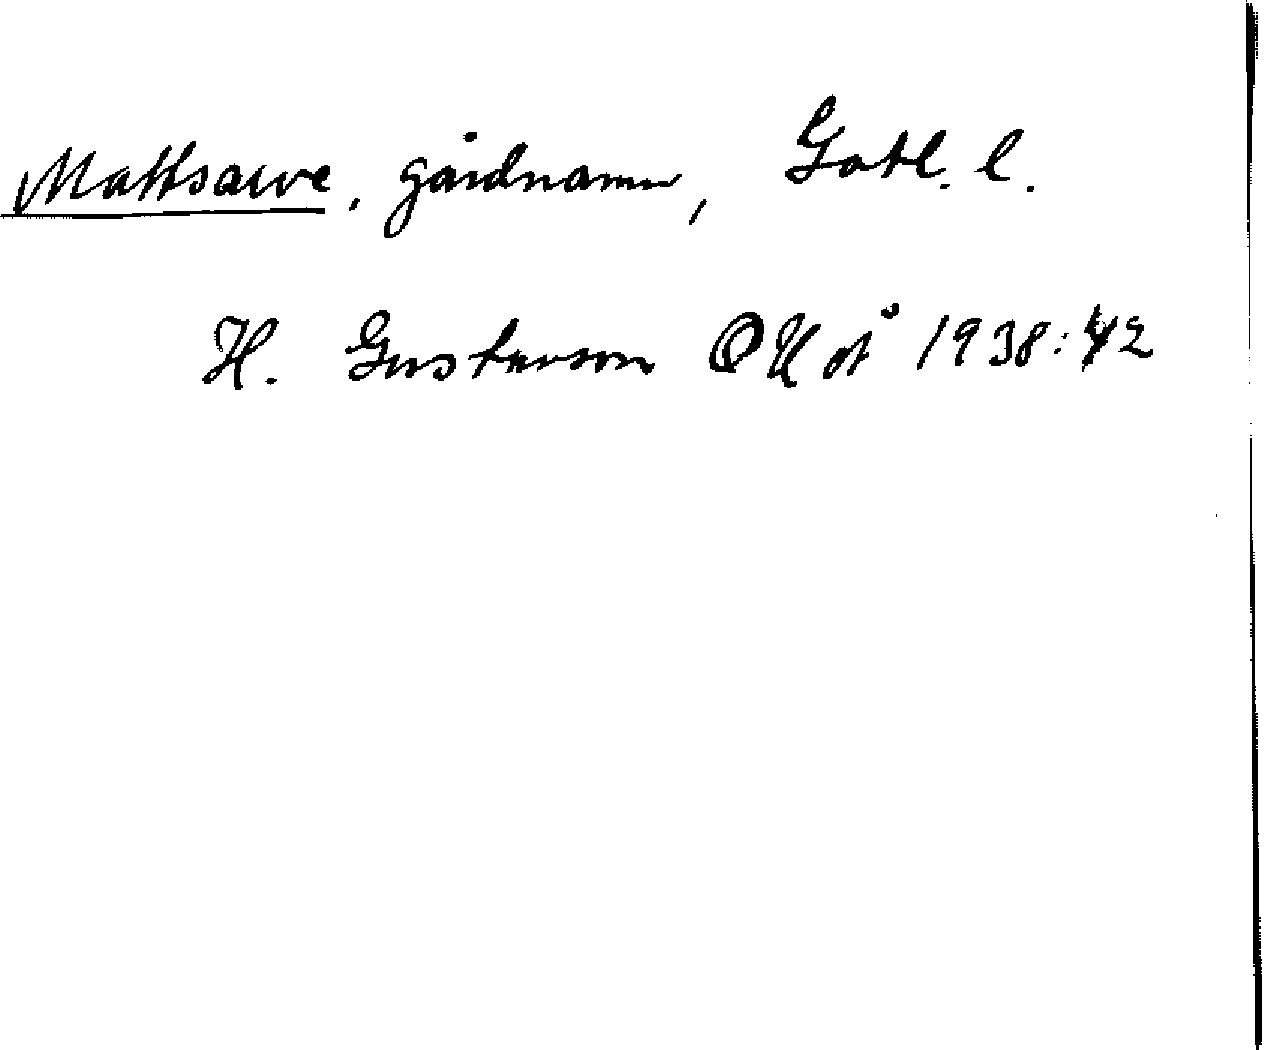 Mattsarve, gårdnamn, Gotl. l.
H. Gustavson OUoÅ 1938:42